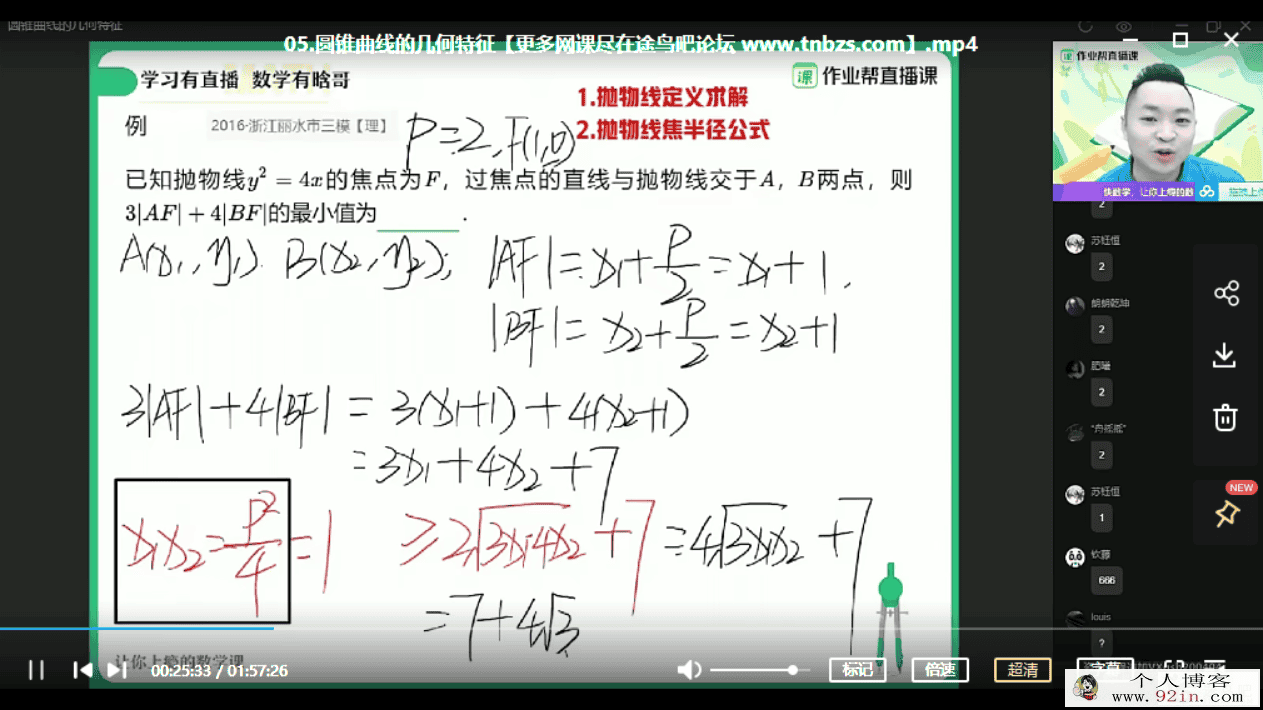 圆锥曲线的几何特征
05.圆锥曲线的几何特征【更多网课尽在途鸟吧论坛 www.tnbzs.com】.mp4
学习有直播 数学有晗哥
课 作业帮直播课
课 作业帮直播课
1.抛物线定义求解
2.抛物线焦半径公式
例 2016·浙江丽水市三模【理】
P=2, F(1,0)
已知抛物线y²=4x的焦点为F，过焦点的直线与抛物线交于A，B两点，则
3|AF|+4|BF|的最小值为 .
A(x₁,y₁). B(x₂,y₂); |AF|=x₁+P/2=x₁+1.
|BF|=x₂+P/2=x₂+1
3|AF|+4|BF| = 3(x₁+1)+4(x₂+1)
=3x₁+4x₂+7
x₁x₂=P²/4=1
≥2√3x₁·4x₂+7=4√3x₁x₂+7
=7+4√3
让你上瘾的数学课
快数学，让你上瘾的数
2
苏钰恒
2
胡胡乾坤
2
肥曦
2
2
苏钰恒
1
钦藤
666
louis
?
NEW
00:25:33 / 01:57:26
标记
倍速
超清
字幕
个人博客
www.92in.com